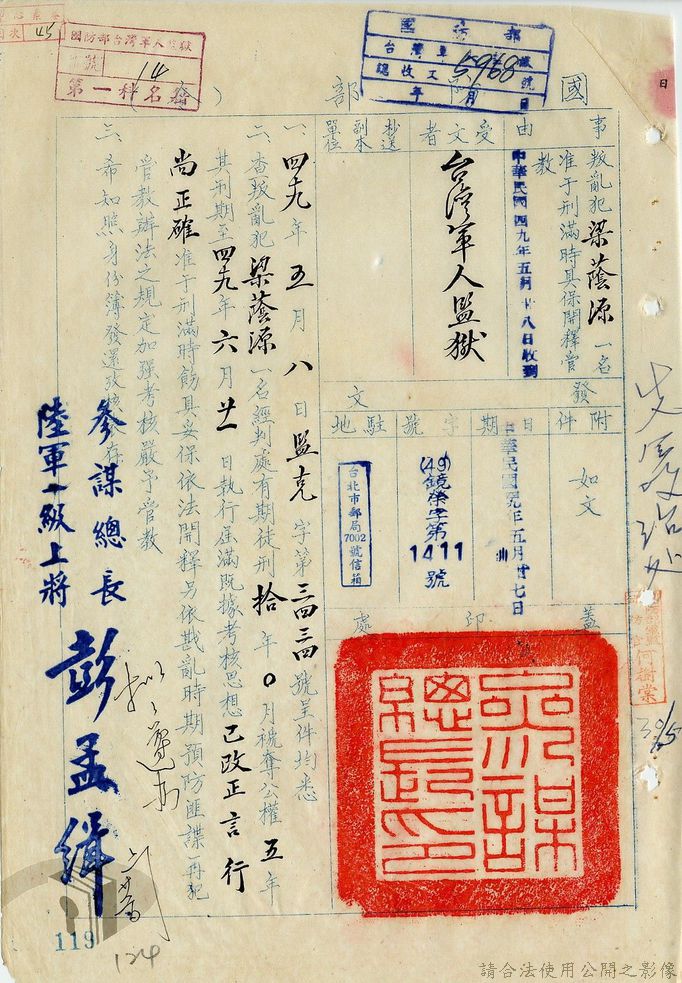 國防部
國防部台灣軍人監獄
號
14
第一科
45
國防部
台灣軍
總收文
5968號
年 月 日
事由
叛亂犯梁蔭源一名
准予刑滿時具保開釋管
教
中華民國四九年五月廿八日收到
受文者
台灣軍人監獄
抄送副本單位
附件
如文
發文
日期
中華民國四九年五月廿七日
字號
(49)鏡榮字第
1411
號
駐地
台北市郵局
7002
號信箱
蓋印處
參謀總長之印
一、四九年五月八日監克字第三四三四號呈件均悉
二、查叛亂犯梁蔭源一名經判處有期徒刑拾年0月褫奪公權五年
其刑期至四九年六月廿一日執行屆滿既據考核思想已改正言行
尚正確准予刑滿時飭具妥保依法開釋另依戡亂時期預防匪諜再犯
管教辦法之規定加强考核嚴予管教
三、希知照身份簿發還
參謀總長
陸軍一級上將
彭孟緝
何樹棠
30/5
119
124
請合法使用公開之影像